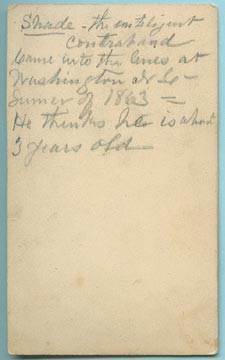 Shade - the inteligent
contraband
Came into the lines at
Washington N Ca -
Sumer of 1863 -
He thinks he is about
3 years old -